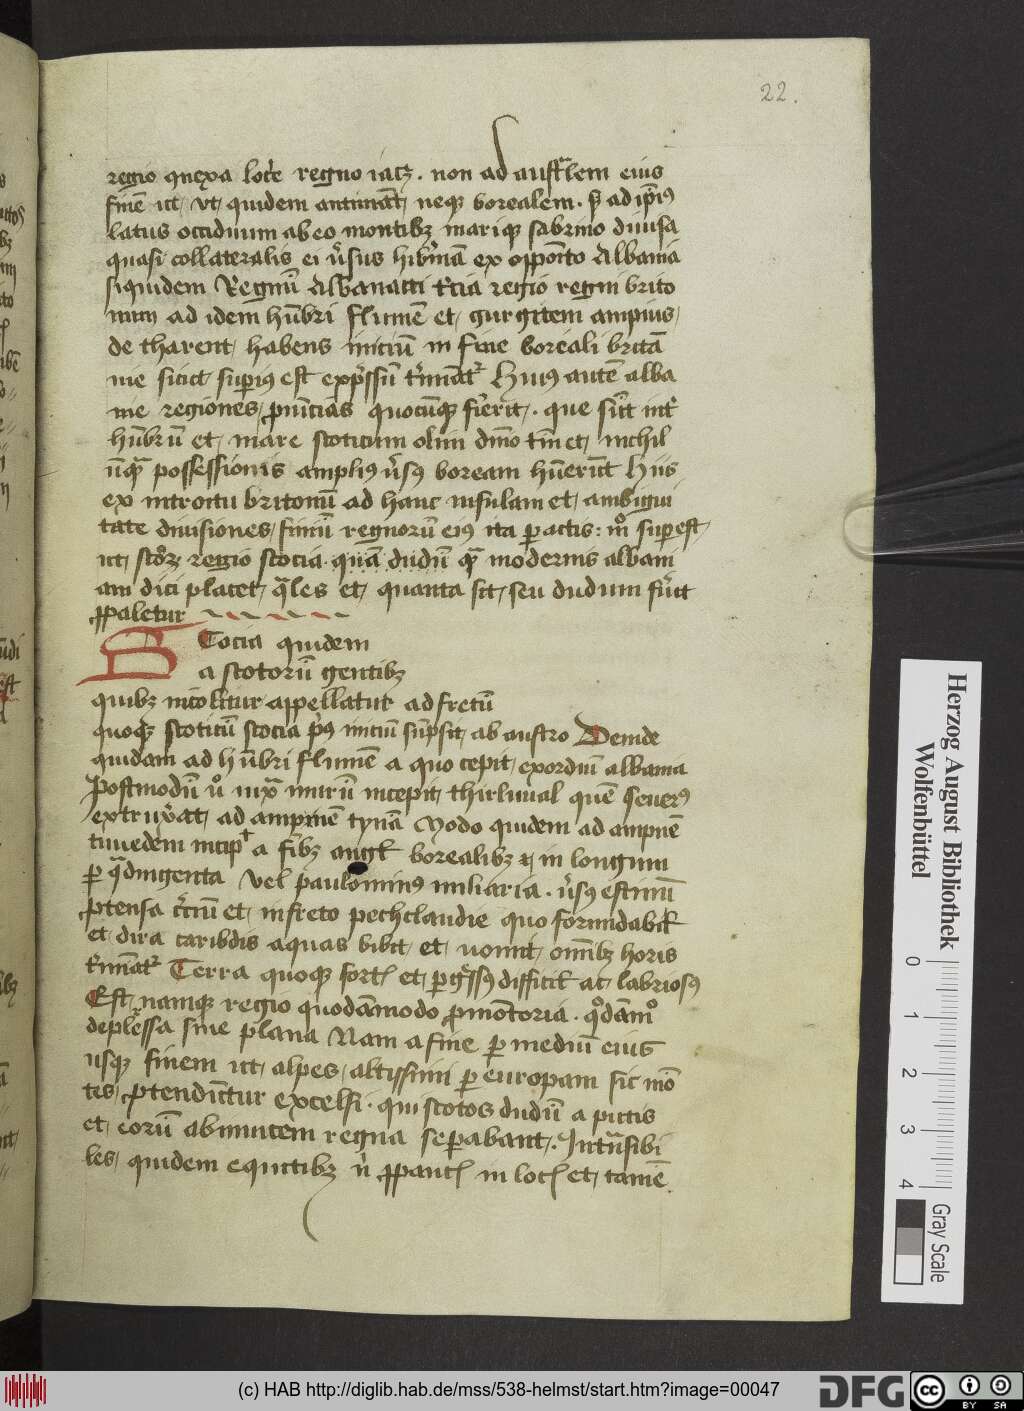 22.
regio quexa locr̄e regno iacꝫ. non ad austr̄lem eius
finē ut, vt, quidem autumāt, neqꝫ borealem. sꝫ ad ip̄iꝰ
latus occiduum ab eo montibꝫ mariqꝫ sabrino diuisa
quasi collateralis ei ūsus hib̄niā ex opposito Albania
siquidem Regnū Albanacti t̄cia regio regni brito
num ad idem hūbri flumē et, gurgitem ampnis,
de tharent, habens iniciū in fine boreali britā
nie sicut, superiꝰ est exp̄ssū t̄minat᷑ Huiꝰ autē alba
nie regiones, ꝓuīcias quocūqꝫ fūerīt. que sūt int̄
hūbrū et, mare scoticum olim dn̄io tn̄ et, nichil
ūqᷓ possessionis ampliꝰ ūsꝰ boream hūerūt hiis
ex introitu britonū ad hanc insulam et, ambigui
tate diuisiones, finiū regnorū eiꝰ ita ꝑactis: mͦ superest,
ut, scōꝝ regio scocia. quā dudū qᷓ modernis albani
am dici placet, qᷓles et, quanta sit, seu dudum fūit
ꝓpaletur
Scocia quidem
a scotorū gentibꝫ
quibꝫ incolitur appellatur ad fretū
quoqꝫ scoticū scocia p̄us iniciū sūpsit, ab austro Deinde
quidam ad hūbri flumē a quo cepit, exordiū albania
Postmodū uͦ iuxᷓ murū incepit, thirlwal quē seuerꝰ
extruxͣat, ad ampnē tynā Modo quidem ad ampnē
twedem incipᵗ a finibꝫ angl̄ borealibꝫ ⁊ in longum
ꝑ qᷓdringenta vel paulominꝰ miliaria. ūsꝰ estiuū
ꝓtensa circiū et, in freto pechclandie quo formidabil̄
et, dira caribdis aquas bibit, et, uomit, omībꝫ horis
t̄minat᷑ Terra quoqꝫ fort̄ et, ꝑgr̄ssꝰ difficil̄ ac labriosꝰ
Est, namqꝫ regio quodāmodo ꝓmōtoria. qͦdāmͦ
deplessa siue plana Nam a fine ꝑ mediū eius
usqꝫ finem ut, alpes, altissimi ꝑ europam sic mō
tes, ꝓtendūtur excelsi. qui scotos dudū a pictis
et, eorū abinuicem regna seꝑabant. Intrāsibi
les, quidem equitibꝫ nͥ ꝓpauc̄ in loc̄ et, tamē
Herzog August Bibliothek
Wolfenbüttel
0 1 2 3 4
Gray Scale
(c) HAB http://diglib.hab.de/mss/538-helmst/start.htm?image=00047
DFG
cc BY SA